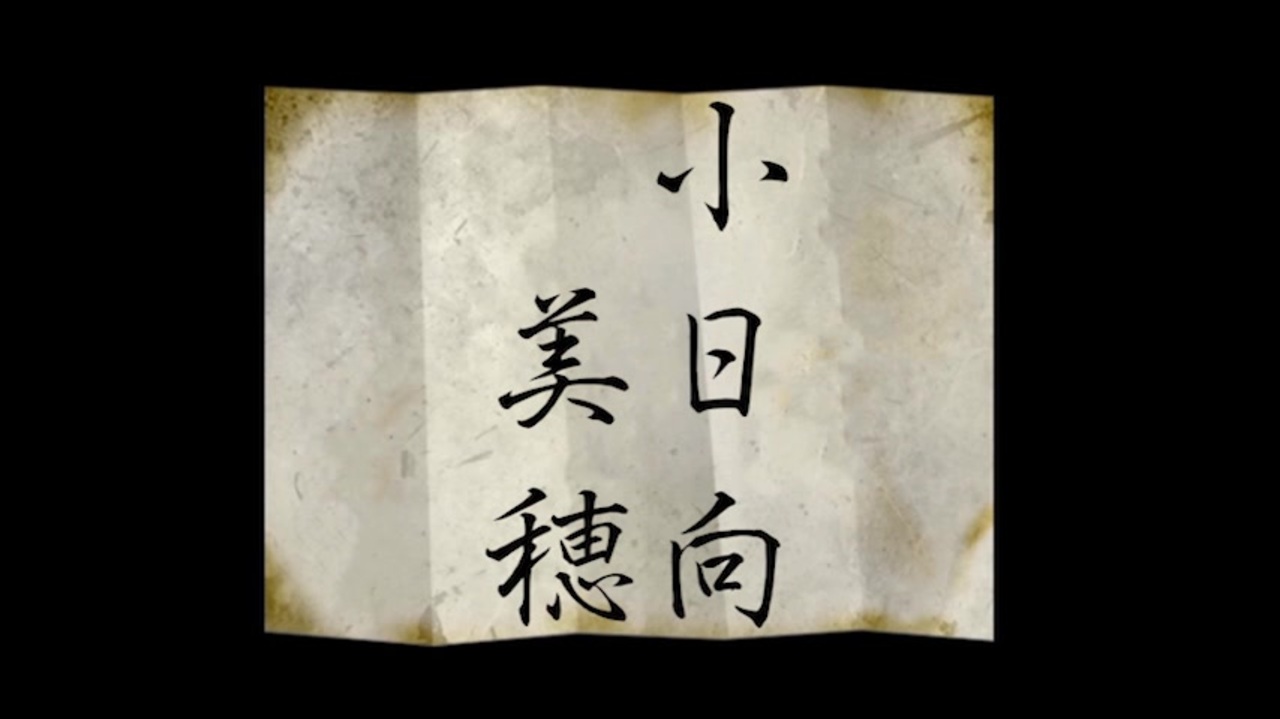 小日向
美穂